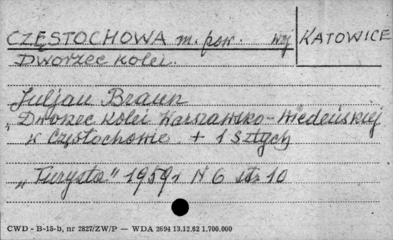 CZĘSTOCHOWA m. pow. woj KATOWICE
Dworzec kolei.
Juljan Braun
"Dworzec kolei Warszawsko-Wiedeńskiej
w Częstochowie + 1 sztych
„Turysta" 1959r N 6 str 10
CWD - B-15-b, nr 2827/ZW/P — WDA 2694 13.12.62 1.700.000